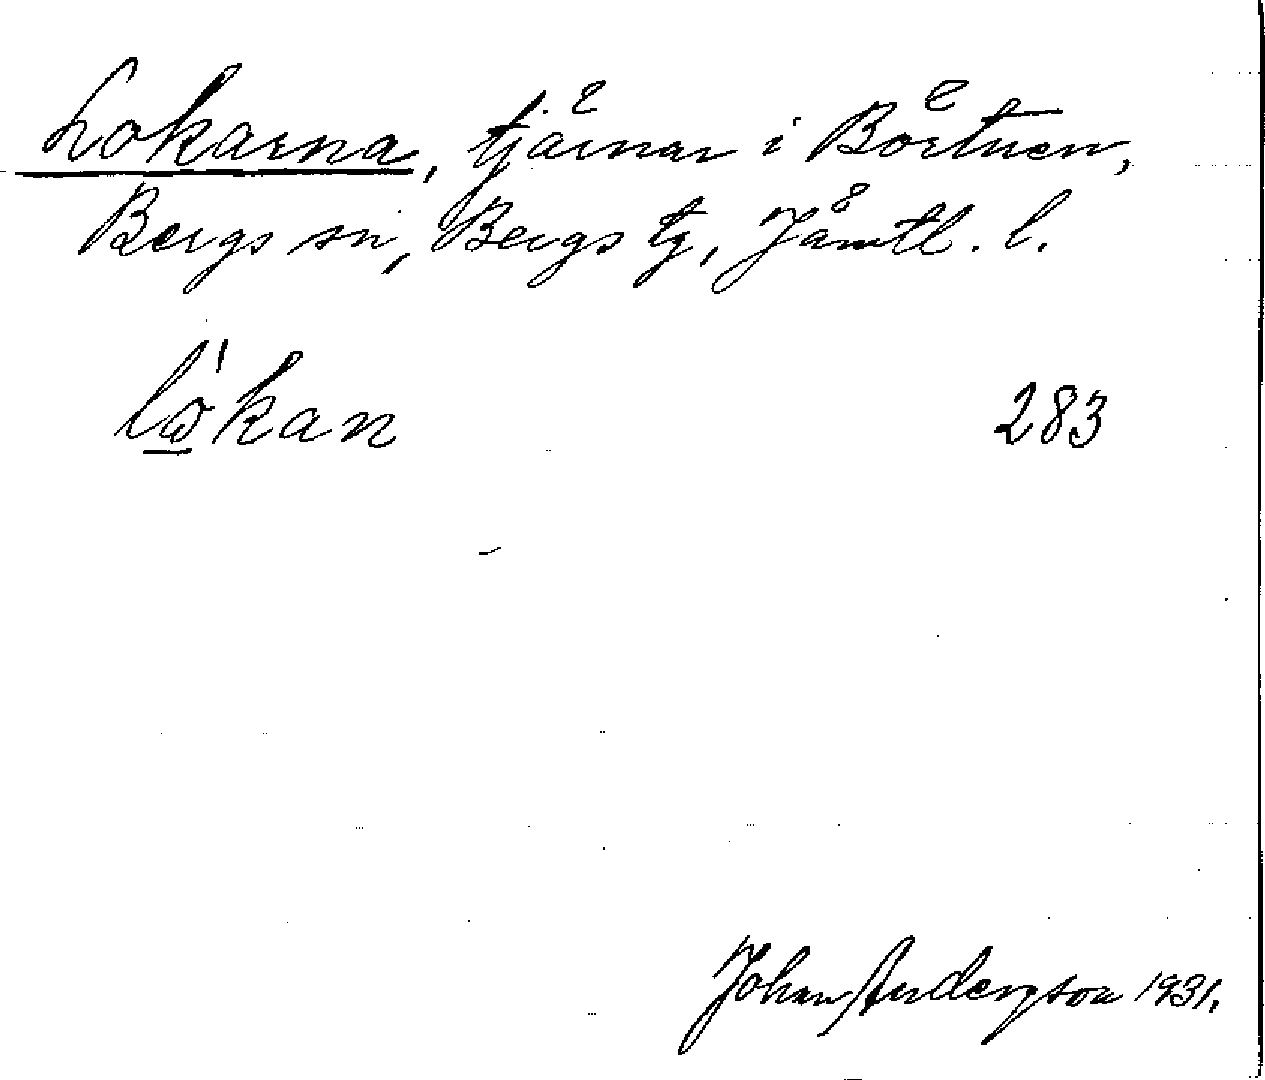 Lokarna, tjärnar i Börtnen,
Bergs sn, Bergs tg, Jämtl. l.
lo̱'kan 283
Johan Anderson 1931.